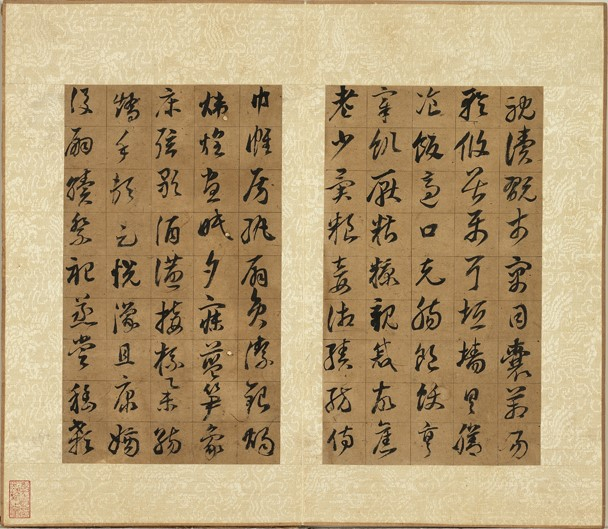 耽讀翫市寓目囊箱易
輶攸畏屬耳垣牆具膳
飡飯適口充腸飽飫烹
宰飢厭糟糠親戚故舊
老少異糧妾御績紡侍
巾帷房紈扇圓潔銀燭
煒煌晝眠夕寐藍笋象
床弦歌酒讌接杯舉觴
矯手頓足悅豫且康嫡
後嗣續祭祀蒸嘗稽顙